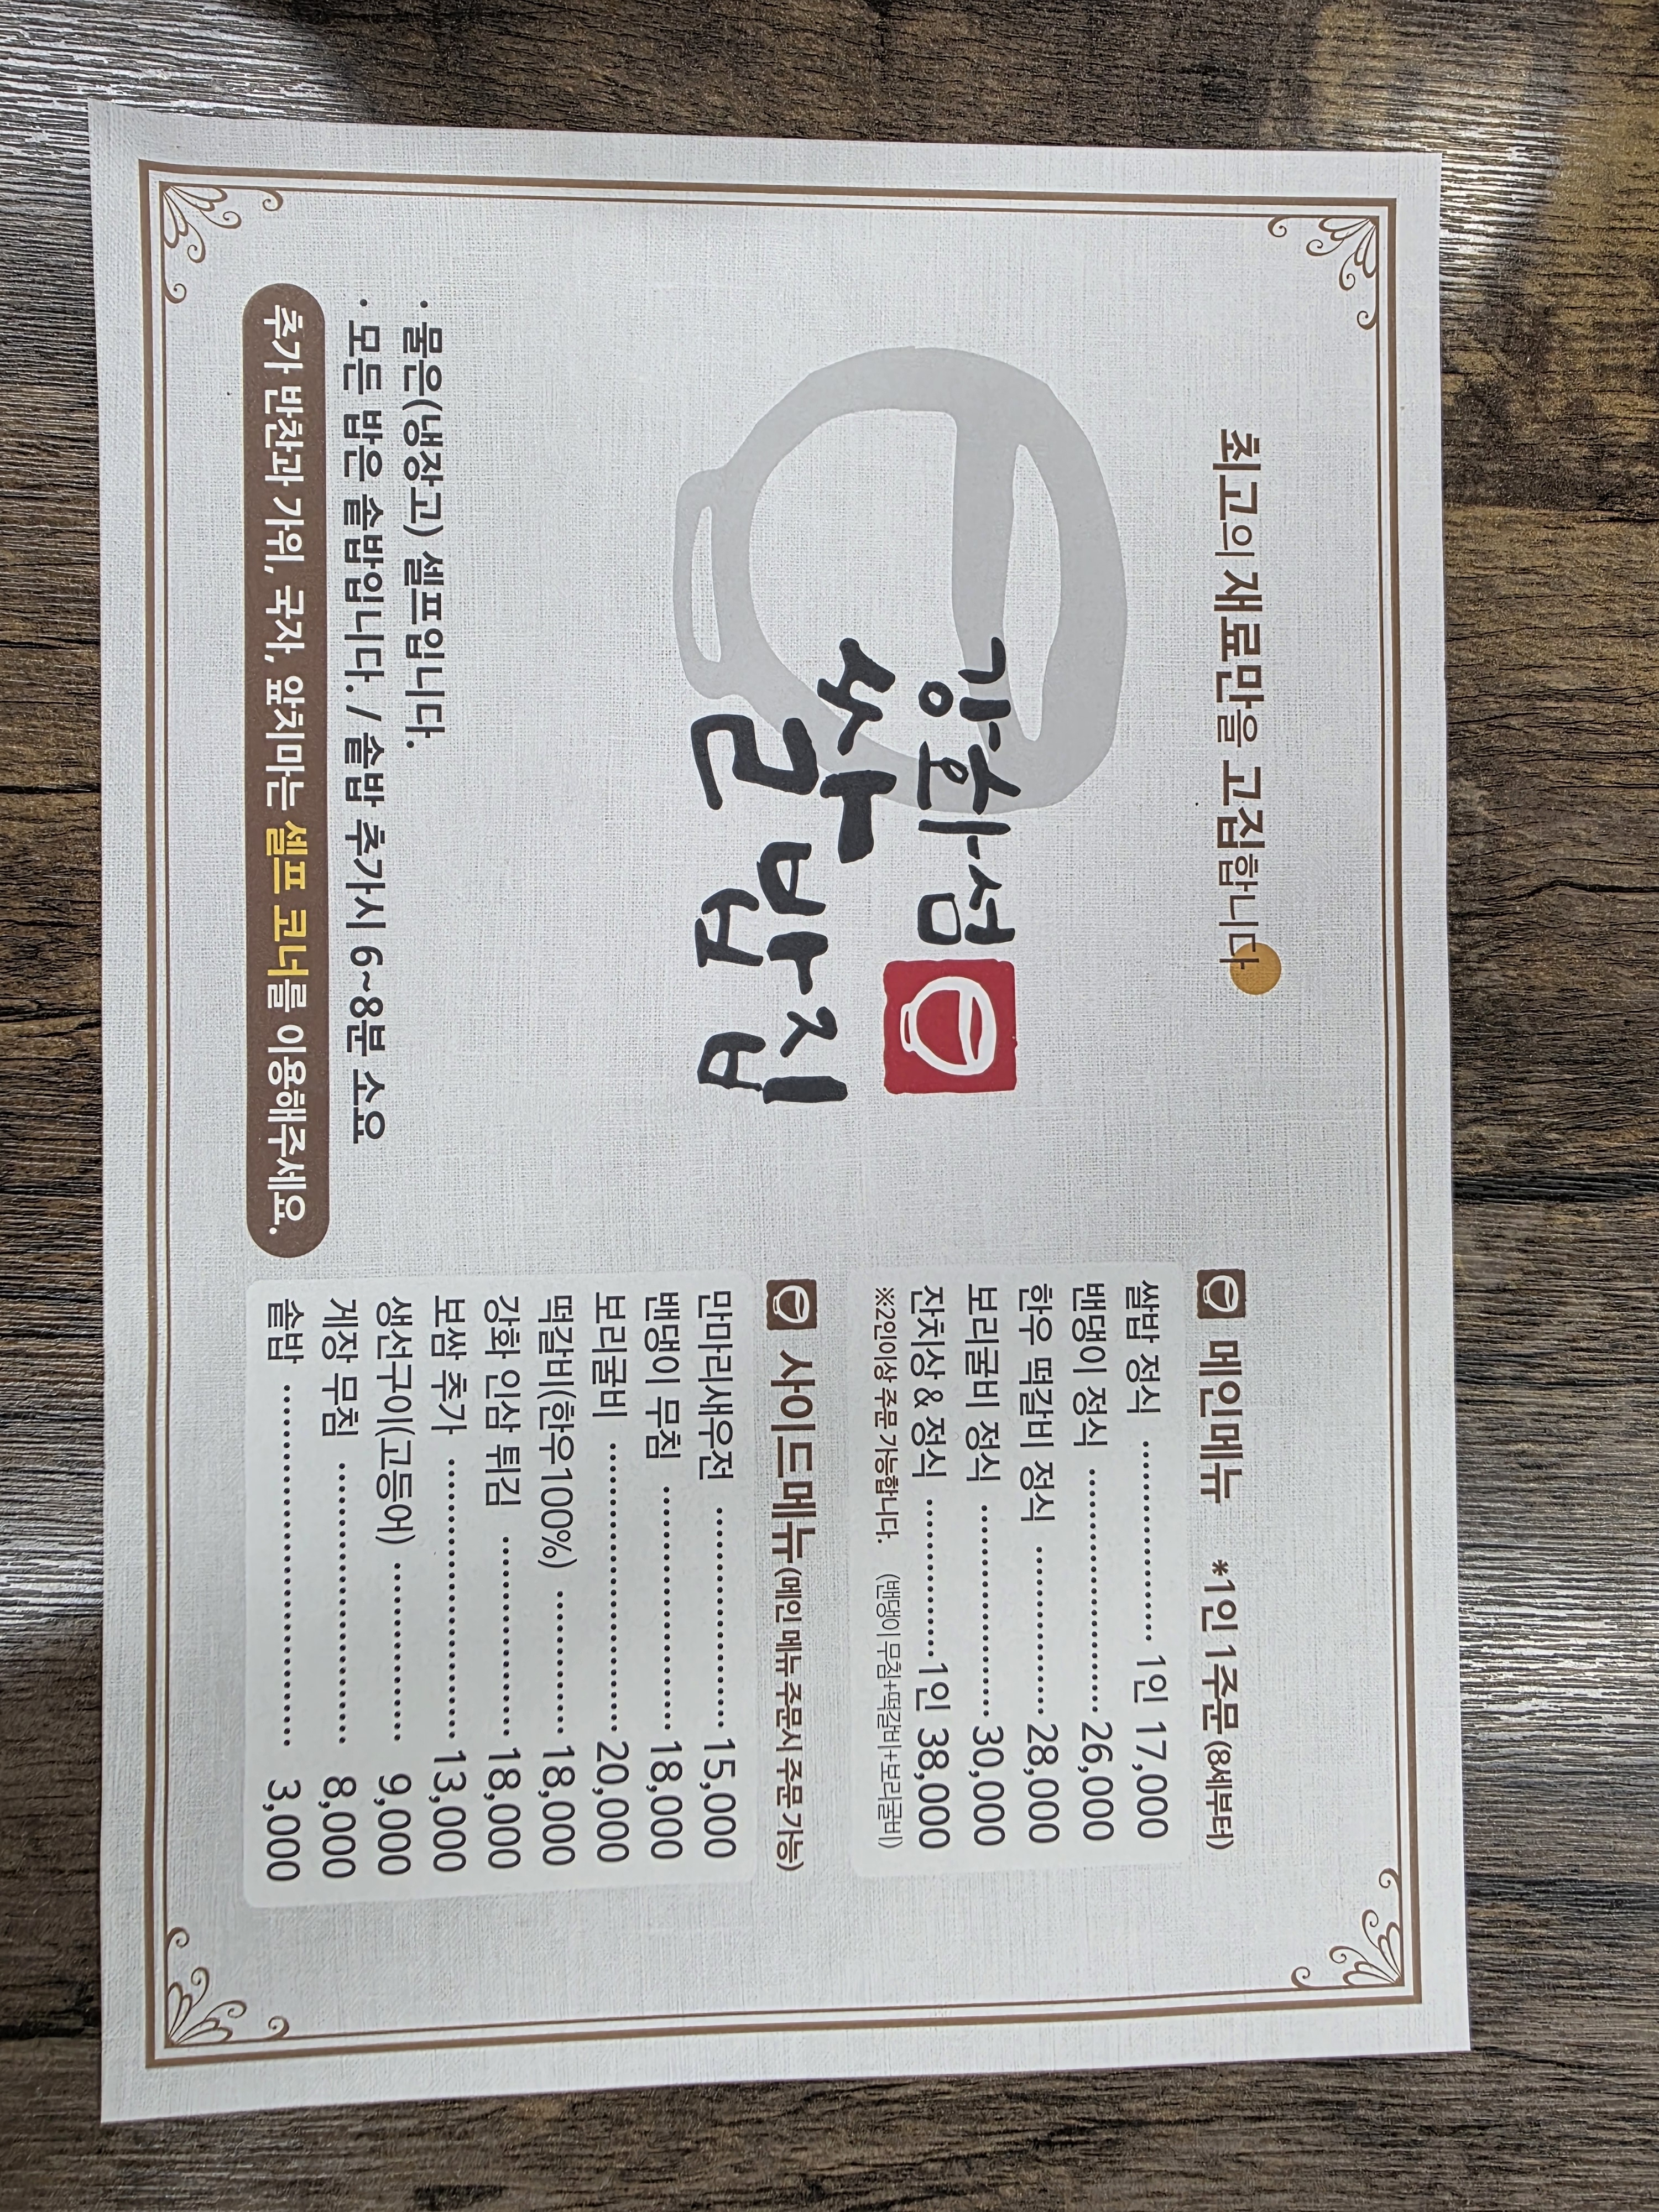 최고의 재료만을 고집합니다
강화섬
쌀밥집
· 물은(냉장고) 셀프입니다.
· 모든 밥은 솥밥입니다. / 솥밥 추가시 6~8분 소요
추가 반찬과 가위, 국자, 앞치마는 셀프 코너를 이용해주세요.
메인메뉴 *1인 1주문 (8세부터)
쌀밥 정식 ················ 1인 17,000
밴댕이 정식 ···················· 26,000
한우 떡갈비 정식 ·············· 28,000
보리굴비 정식 ················· 30,000
잔치상 & 정식 ·············1인 38,000
※2인이상 주문 가능합니다. (밴댕이 무침+떡갈비+보리굴비)
사이드메뉴 (메인 메뉴 주문시 주문 가능)
만마리새우전 ·················· 15,000
밴댕이 무침 ···················· 18,000
보리굴비 ························ 20,000
떡갈비(한우100%) ············ 18,000
강화 인삼 튀김 ················· 18,000
보쌈 추가 ······················· 13,000
생선구이(고등어) ··············· 9,000
게장 무침 ························ 8,000
솥밥 ······························ 3,000